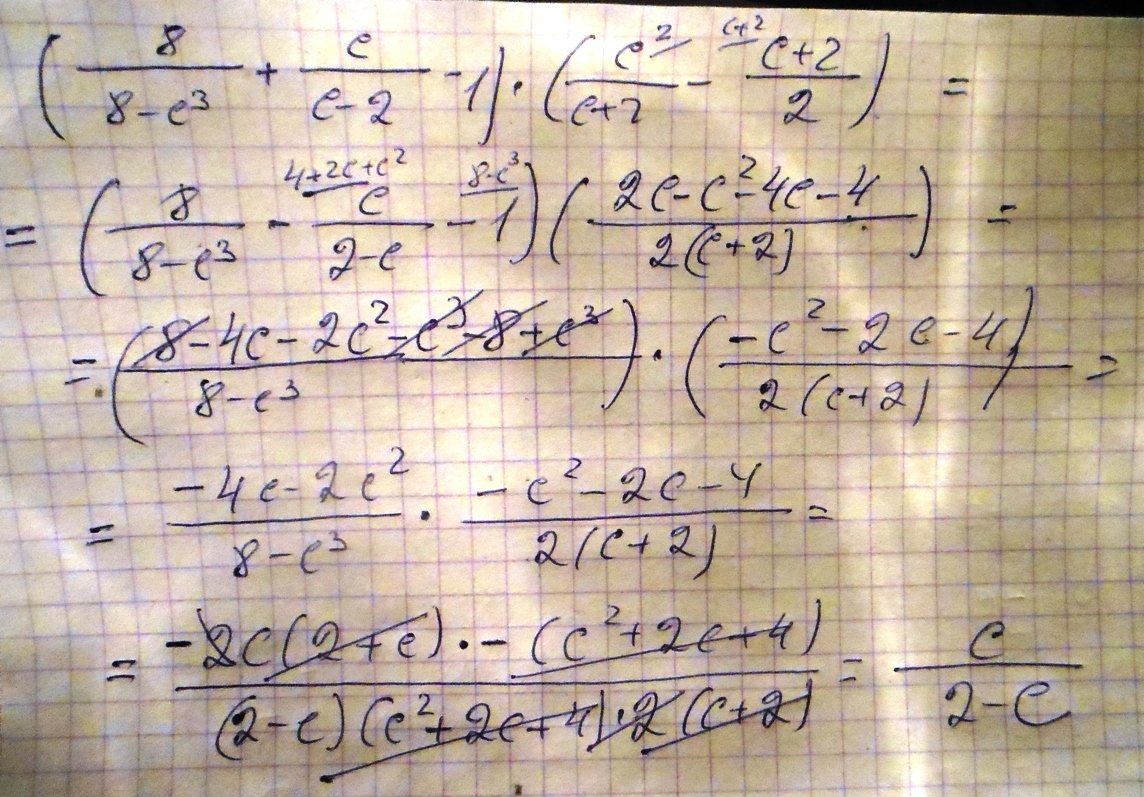 (8/(8-c³) + c/(c-2) - 1) · (c²/(c+2) - ᶜ⁺²(c+2)/2) =
= (8/(8-c³) - ⁴⁺²ᶜ⁺ᶜ²c/(2-c) - ⁸⁻ᶜ³1) ((2c-c²-4c-4)/(2(c+2))) =
= ((8-4c-2c²-c³-8+c³)/(8-c³)) · ((-c²-2c-4)/(2(c+2))) =
= (-4c-2c²)/(8-c³) · (-c²-2c-4)/(2(c+2)) =
= (-2c(2+c)·-(c²+2c+4))/((2-c)(c²+2c+4)·2(c+2)) = c/(2-c)